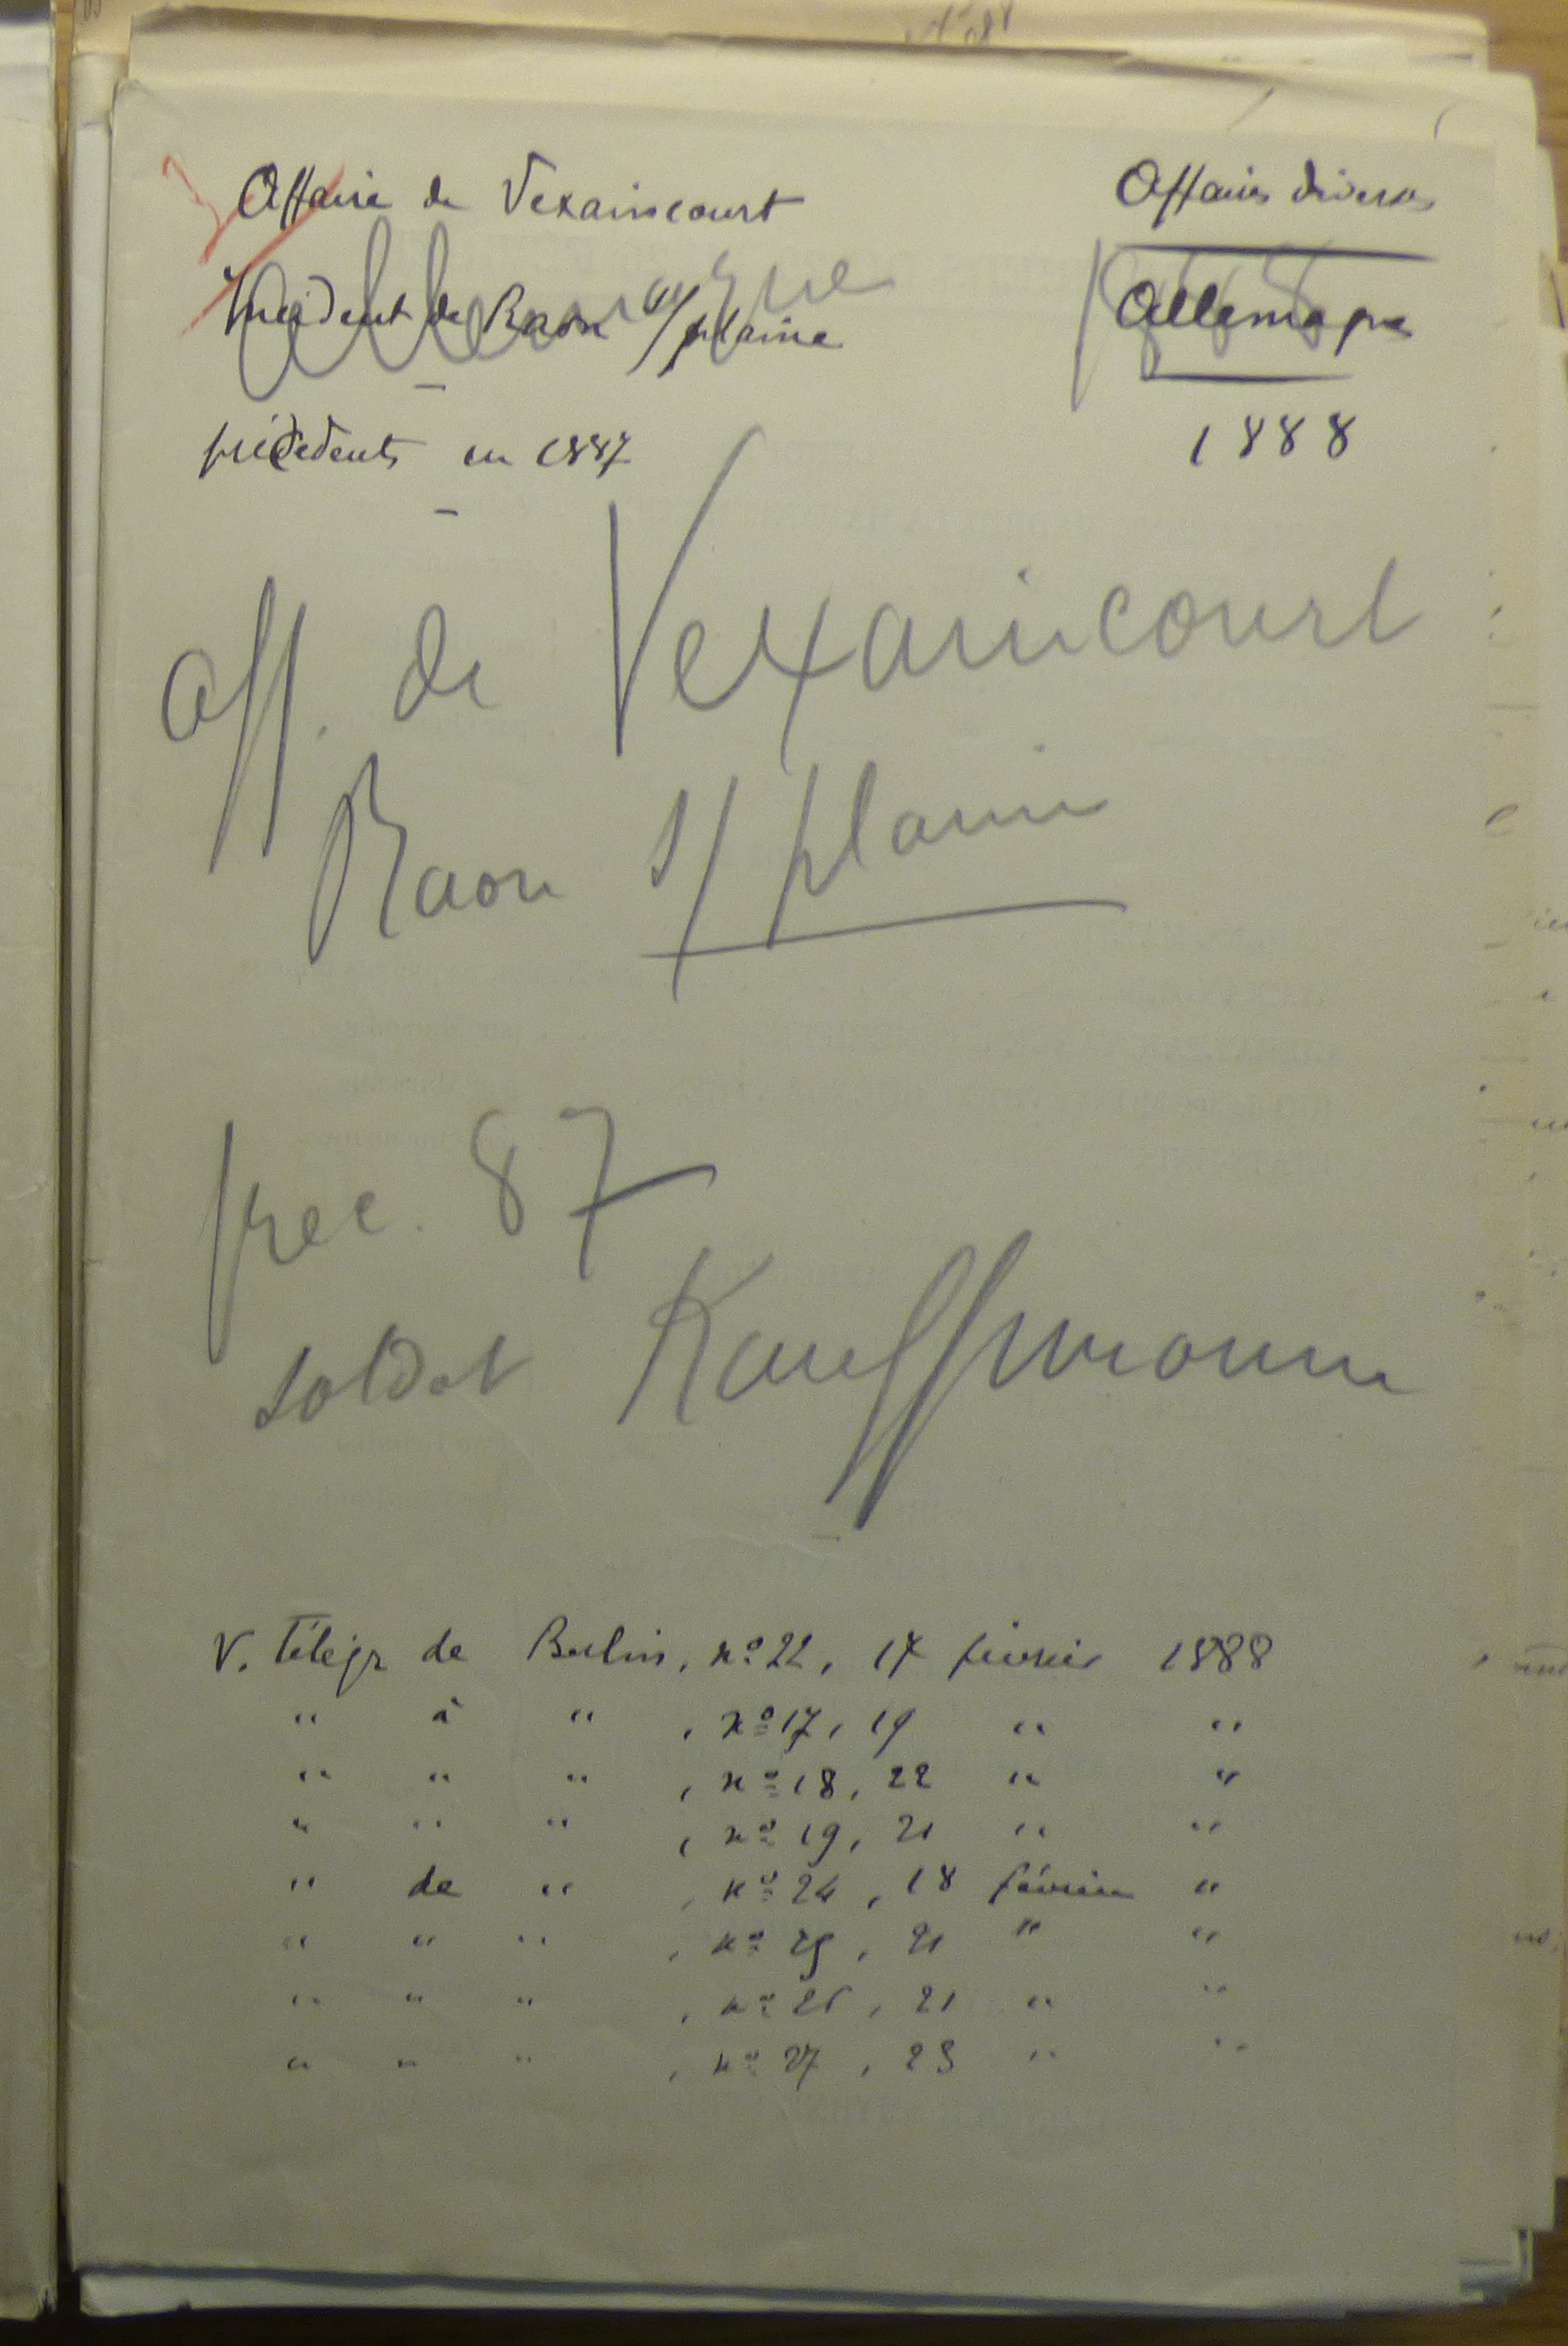 Affaire de Vexaincourt
Incident de Raon s/ plaine
Allemagne
précédents en 1887
Affaires diverses
Allemagne
1888
Aff. de Vexaincourt
Raon s/ plaine
prec. 87
soldat Kauffmann
V. Télégr de Berlin, nº 22, 17 février 1888
" à " , nº 17, 19 " "
" " " , nº 18, 22 " "
" " " , nº 19, 21 " "
" de " , nº 24, 18 février "
" " " , nº 25, 21 " "
" " " , nº 26, 21 " "
" " " , nº 27, 23 " "